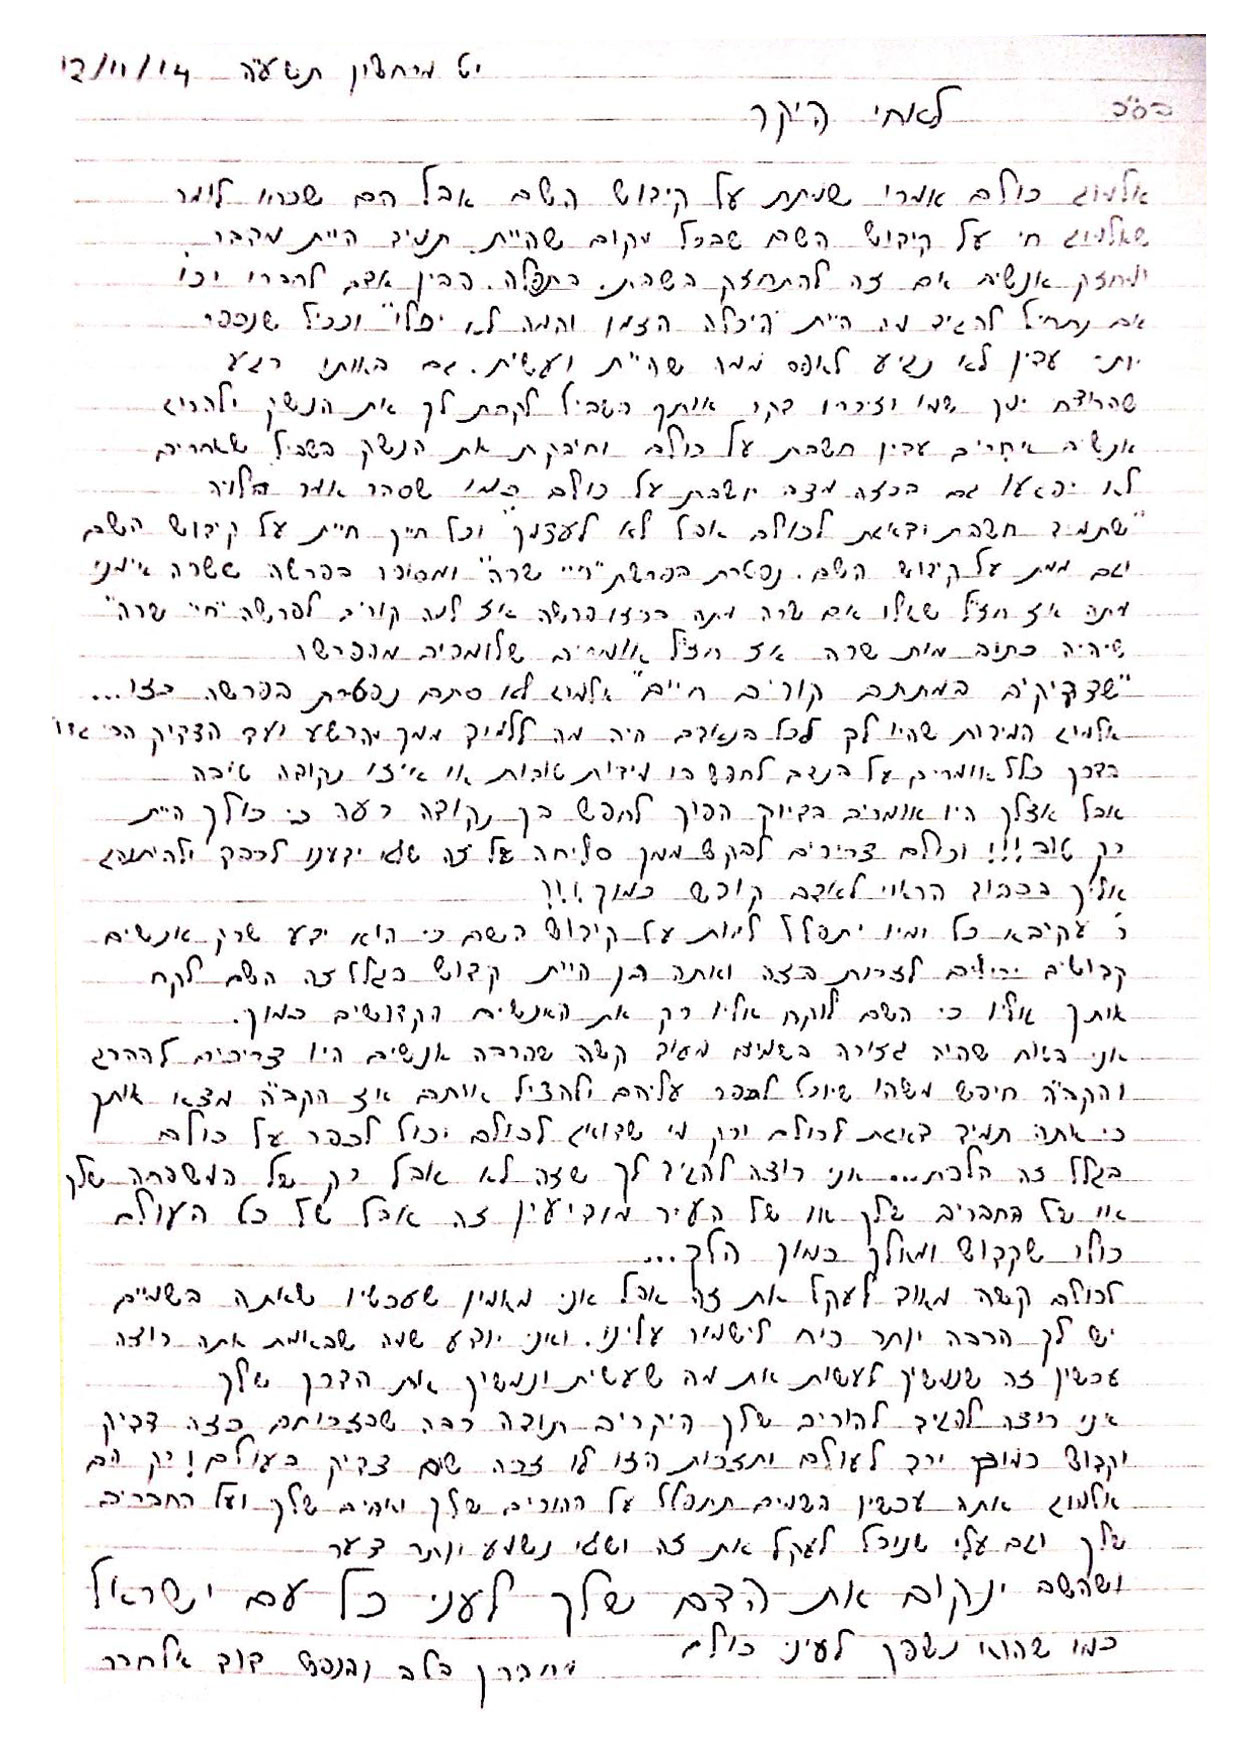 יט מרחשון תשע"ה 12/11/14
בס"ד
לאחי היקר
אלמוג כולם אמרו שמתת על קידוש השם אבל הם שכחו לומר
שאלמוג חי על קידוש השם שבכל מקום שהיית תמיד היית מחבר
ומחזק אנשים אם זה להתחזק בשבת, בתפלה, הבין אדם לחברו וכו'
אם נתחיל להגיד מה היית יכלה הזמן והמה לא יכלו וככל שנספר
יותר עדין לא נגיע לאפס ממה שהיית ועשית. גם באותו רגע
שהרוצח ימך שמו וזיכרו דקר אותך בשביל לקחת לך את הנשק ולהרוג
אנשים אחרים עדין חשבת על כולם וחיבקת את הנשק בשביל שאחרים
לא יפגעו גם בכזה מצב חשבת על כולם כמו שסהר אמר בלויה
"שתמיד חשבת ודאגת לכולם אבל לא לעצמך" וכל חייך חיית על קידוש השם
וגם מתת על קידוש השם. נפטרת בפרשת "חיי שרה" ומסופר בפרשה ששרה אימנו
מתה אז חז"ל שאלו אם שרה מתה בכזו פרשה אז למה קורים לפרשה "חיי שרה"
שיהיה כתוב מות שרה אז חז"ל אומרים שלומדים מהפרשה
"שצדיקים במתתם קורים חיים" אלמוג לא סתם נפטרת בפרשה כזו...
אלמוג המידות שהיו לך לכל בנאדם היה מה ללמוד ממך מהרשע ועד הצדיק הכי גדו
בדרך כלל אומרים על בנאדם לחפש בו מידות טובות או איזו נקודה טובה
אבל אצלך היו אומרים בדיוק הפוך לחפש בך נקודה רעה כי כולך היית
רק טוב!!! וכולם צריכים לבקש ממך סליחה על זה שלא ידענו לכבד ולהיתנהג
אליך בכבוד הראוי לאדם קודש כמוך!!!
ר' עקיבא כל ימיו יתפלל למות על קידוש השם כי הוא ידע שרק אנשים
קדושים יכולים לזכות בזה ואתה כן היית קדוש בגלל זה השם לקח
אותך אליו כי השם לוקח אליו רק את האנשים הקדושים כמוך.
אני בטוח שהיה גזירה בשמים מאוד קשה שהרבה אנשים היו צריכים לההרג
והקב"ה חיפש משהו שיוכל לכפר עליהם ולהציל אותם אז הקב"ה מצא אותך
כי אתה תמיד דאגת לכולם ורק מי שדואג לכולם יכול לכפר על כולם
בגלל זה הלכת... אני רוצה להגיד לך שזה לא אבל רק של המשפחה שלך
או של החברים שלך או של העיר מודיעין זה אבל של כל העולם
כולו שקדוש ומאלך כמוך הלך...
לכולם קשה מאוד לעקל את זה אבל אני מאמין שעכשיו שאתה בשמיים
יש לך הרבה יותר כוח לישמור עלינו. ואני יודע שמה שבאמת אתה רוצה
עכשיו זה שנמשיך לעשות את מה שעשית ונמשיך את הדרך שלך
אני רוצה להגיד להורים שלך היקרים תודה רבה שבזכותם כזה צדיק
וקדוש כמוך ירד לעולם ותזכות הזו לו זכה שום צדיק בעולם! רק הם
אלמוג אתה עכשיו השמים תתפלל על ההורים שלך ואחים שלך ועל החברים
שלך וגם עלי שנוכל לעקל את זה ושלא נשמע יותר צער
ושהשם ינקום את הדם שלך לעני כל עם ישראל
כמו שהוא נשפך לעיני כולם
מחברך בלב ובנפש דוד אלחרר